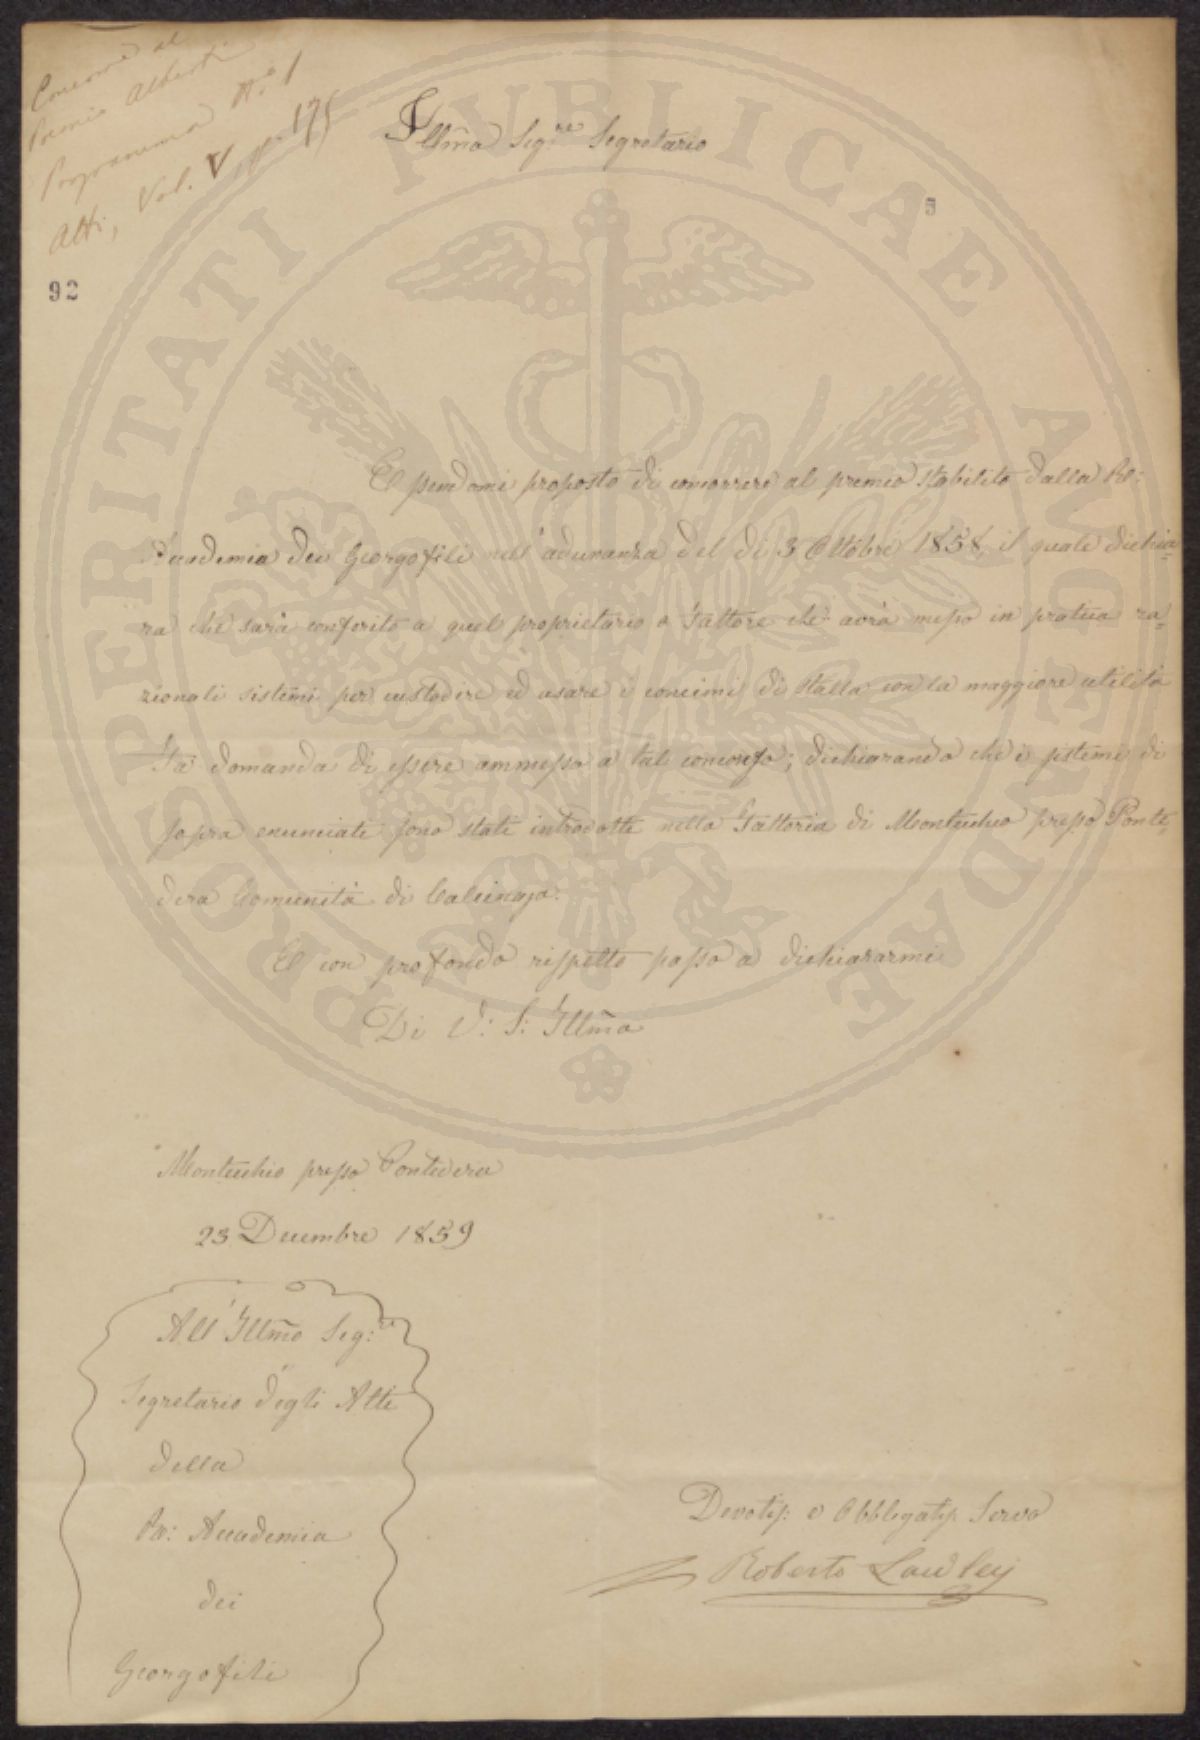 Concorre al
Premio Alberti
Programma N.º 1
Atti, Vol. V pp. 175
92
Illm̃o Sig.re Segretario
5
PROSPERITATI PUBLICAE AUGENDAE
Essendomi proposto di concorrere al premio stabilito dalla Rl:
Accademia dei Georgofili nell'adunanza del di 3 Ottobre 1858, il quale dichia=
ra che sarà conferito a quel proprietario o Fattore che avrà messo in pratica ra=
zionali sistemi per custodire ed usare i concimi di stalla con la maggiore utilità
Fà domanda di essere ammesso a tal concorso; dichiarando che i sistemi di
sopra enunciati sono stati introdotti nella Fattoria di Montecchio presso Ponte=
dera Comunità di Calcinaja.
E con profondo rispetto passo a dichiararmi
Di V: S: Illm̃a
Montecchio presso Pontedera
23 Decembre 1859
All'Illm̃o Sig:re
Segretario degli Atti
della
Accademia
dei
Georgofili
Devotiss: e Obbligatiss Servo
Roberto Lawley